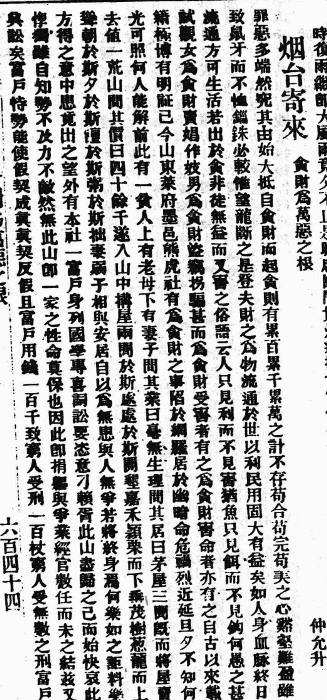 烟台寄來
貪財爲萬惡之根
仲允升
罪惡多端然究其由始大抵自貪財而起貪則有累百累千累萬之計不存苟合苟完苟美之心谿壑難盈雖
致鼠牙而不恤錙銖必較惟望龍斷之是登夫財之爲物流通於世以利民用固大有益矣如人身血脈終
流通方可生活若出於貪非徒無益而又害之俗語云人只見利而不見害猶魚只見餌而不見鈎何愚之甚
試觀女爲貪財賣娼作妓男爲貪財盜竊拐騙甚而爲貪財受害者有之爲貪財害命者亦有之自古以來載
績極博有明証已今山東萊府墨邑熊虎社有爲貪財之事陷於網羅居於幽暗命危禍烈近延旦夕不知何
光可照何人能解前此有一貧人上有老母下有妻子間其業曰毫無生理問其居曰茅屋三間旣而將屋賣
去値一荒山間其價曰四十餘千遂入山中搆屋兩間於斯處處於斯開墾嘉禾穎栗而下乘茂樹葱蘢而上
聳朝於斯夕於斯饘於斯粥於斯拙妻弱子相與安居自以爲無患與人無爭若將終身焉何樂如之詎料樂
方得之意中患竟出之望外有本社一富戶身列國學專喜詞訟要恣意刁賴胥此山盡歸之己而始快哀此
惸獨雖自知勢不及力不敵然無此山卽一家之性命莫保也因此卽捐軀與爭業經官數任而未之結茲又
與訟矣富戶恃勢能使假契成眞眞契反假且富戶用錢一百千致窮人受刑一百杖窮人受無數之刑富戶
六百四十四